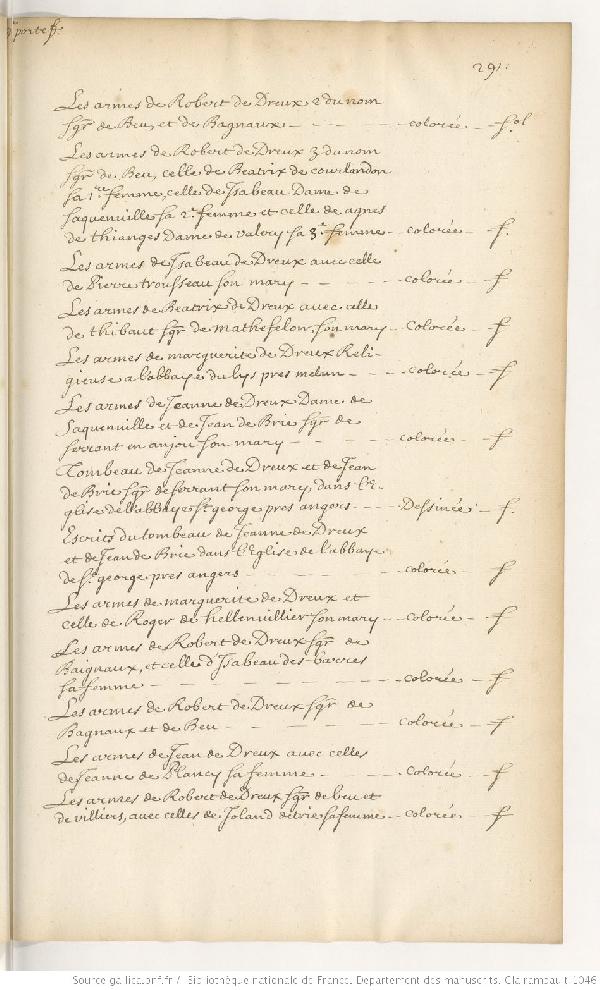 portef.
291.
Les armes de Robert de Dreux 2 du nom
sgr de Beu, et de Bagnaux - - - - colorée - fol
Les armes de Robert de Dreux 3 du nom
sgr de Beu, celle de Beatrix de courlandon
sa 1re femme, celle de Isabeau Dame de
saquenville sa 2e femme et celle de agnes
de thianges Dame de valery sa 3e femme - colorée - f.
Les armes de Isabeau de Dreux avec celle
de Pierre trousseau son mary - - - - colorée - f
Les armes de Beatrix de Dreux avec celle
de thibaut sgr de mathefelon son mary - colorée - f
Les armes de marguerite de Dreux Reli-
gieuse a l'abbaye du lys pres melun - - - colorée - f
Les armes de Jeanne de Dreux Dame de
Saquenuille et de Jean de Brie sgr de
serrant en anjou son mary - - - - colorée - f
Tombeau de Jeanne de Dreux et de Jean
de Brie sgr de serrant son mary, dans l'E-
glise de l'abbaye st george pres angers - - - Dessinée - f.
Escrits du tombeau de Jeanne de Dreux
et de Jean de Brie dans l'Eglise de l'abbaye
de st george pres angers - - - - colorée - f
Les armes de marguerite de Dreux et
celle de Roger de hellenuillier son mary - colorée - f
Les armes de Robert de Dreux sgr de
Baignaux, et celle d'Isabeau des barres
sa femme - - - - colorée - f
Les armes de Robert de Dreux sgr de
Bagnaux et de Beu - - - - colorée - f
Les armes de Jean de Dreux avec celles
de Jeanne de Plancy sa femme - - - colorée - f
Les armes de Robert de Dreux sgr de beu et
de villiers, avec celles de Joland de trie sa femme - colorée - f
Source gallica.bnf.fr / Bibliothèque nationale de France. Département des manuscrits. Clairambault 1046